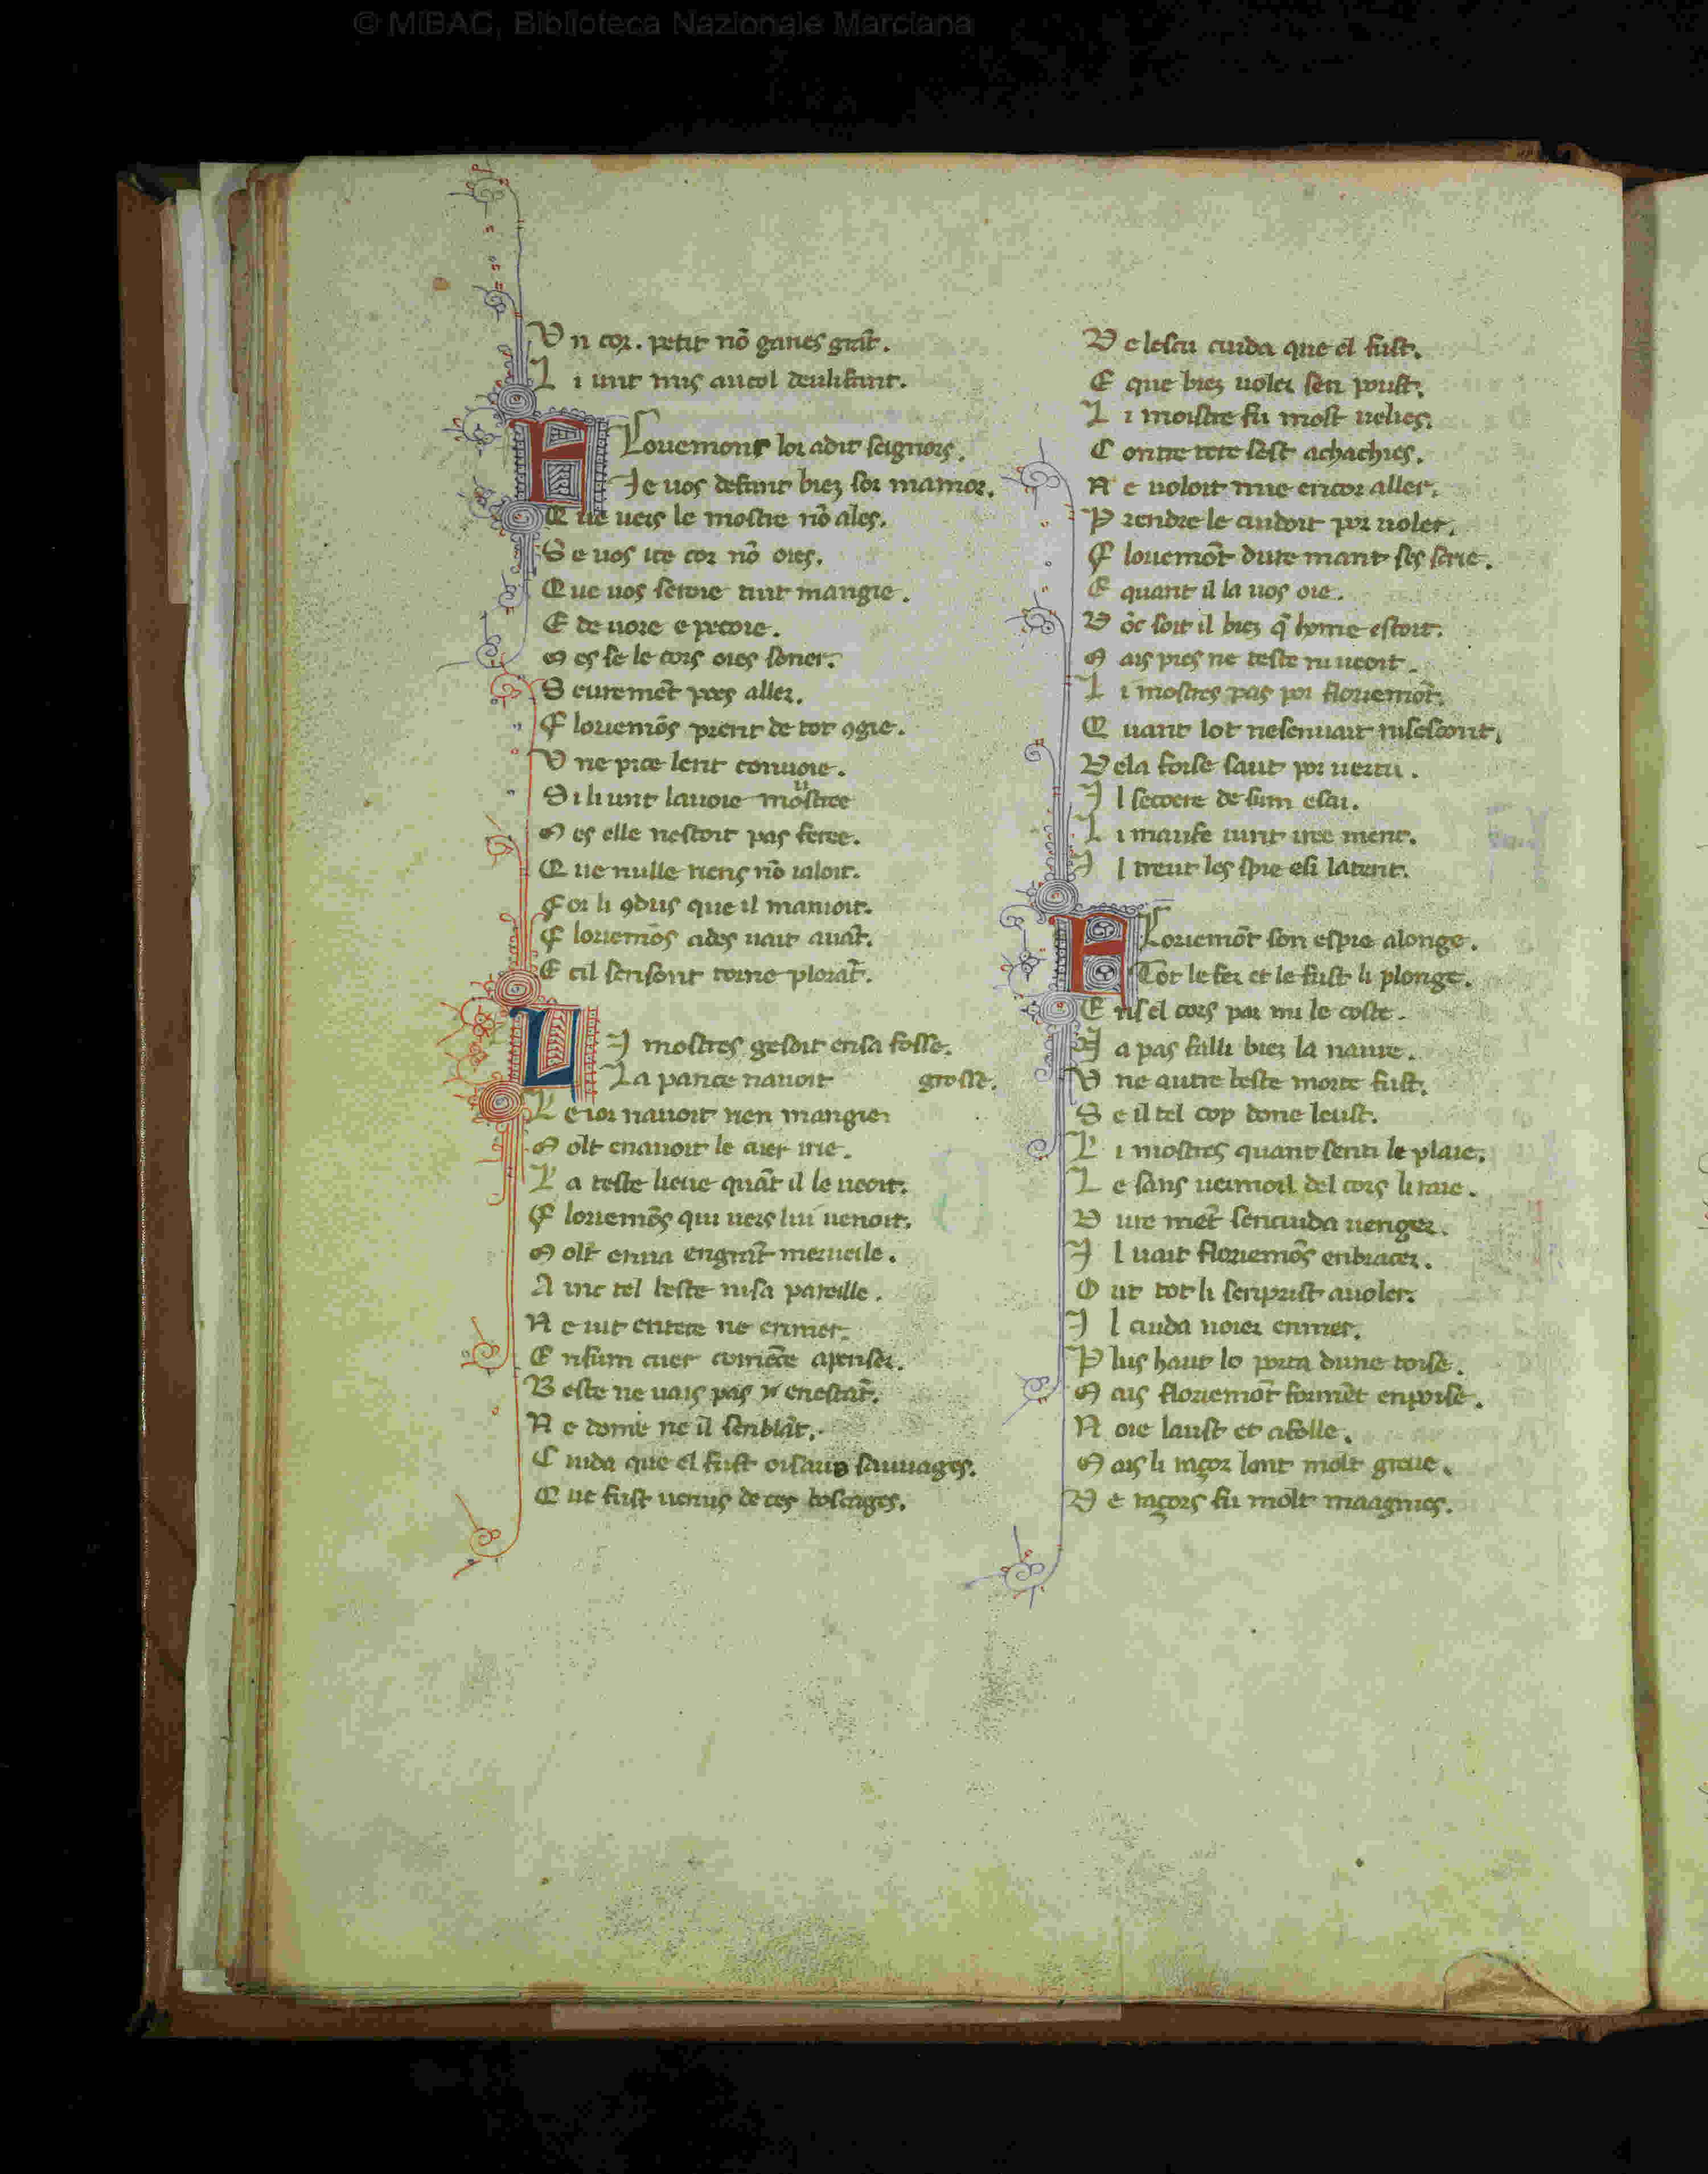 © MiBAC, Biblioteca Nazionale Marciana
V n cor. petit nō ganes grāt.
L i unt mis au col deuhtant.
F Louemons lor a dit seignors.
Je vos defant biez sor mamor.
Q ue uers le mostre nō ales.
S e uos ice cor nō oies.
Q ue uos seroie tuit mangie.
E de uore e pecoie.
M es se le cors oies soner.
S euremēt poes aller.
F louemōs prent de tot ꝯgie.
V ne pice lent conuoie.
S i li unt la uoie mōstree
M es elle nestoit pas feree.
Q ue nulle riens nō ualoit.
F or li ꝯdus que il mamoit.
F louemōs ades uait auāt.
E cil sensont torne plorāt.
L I mostres gesoit en sa fosse.
La pance nauoit grosse.
L e ior nauoit rien mangie
M olt en auoit le cuer irie.
L a teste lieue quāt il le ueoit.
F louemōs qui uers lui uenoit.
M olt en ua en grāt merueile.
A inc tel beste ni sa pareille.
N e uit en tere ne en mer.
E n sum cuer comēce a penser.
B este ne uais pas en estāt.
N e dome ne il senblāt.
C uida que el fust oisaus sauuages.
Q ue fust uenus de ces boscages.
D e lescu cuida que el fust.
E que biez uoler sen poust.
L i moistre fu molt uelies.
C ontre tere sest achachies.
N e uoloit mie encor aller.
P rendre le cuidoit por uoler.
F louemōt dure mant ses serie.
E quant il la uos oie.
D ōc soit il biez q̄ home estoit.
M ais pies ne teste ni ueoit.
L i mostres pas por flouemōt.
Q uant lot ne senuait ni sescont.
D e la fosse saut por uertu.
I l secoere de sum escu.
L i maufe uint iree ment.
I l treut les spie e si latent.
F Louemōt son espie alonge.
Tot le fer et le fust li plonge.
E nsel cors par mi le coste.
N a pas falli biez la naure.
V ne autre beste morte fust.
S e il tel cop done leust.
L i mostres quant senti le plaie.
L e sans uermoil del cors li raie.
D ure mēt sen cuida uenger.
I l uait flouemōs enbracer.
O ut tot li senprist a uoler.
I l cuida noier en mer.
P lus haut lo porta dune toise.
M ais flouemōt formēt en poise.
N oie laust et afolle.
M ais li raçor lont molt greue.
D e raçors fu molt maagnies.